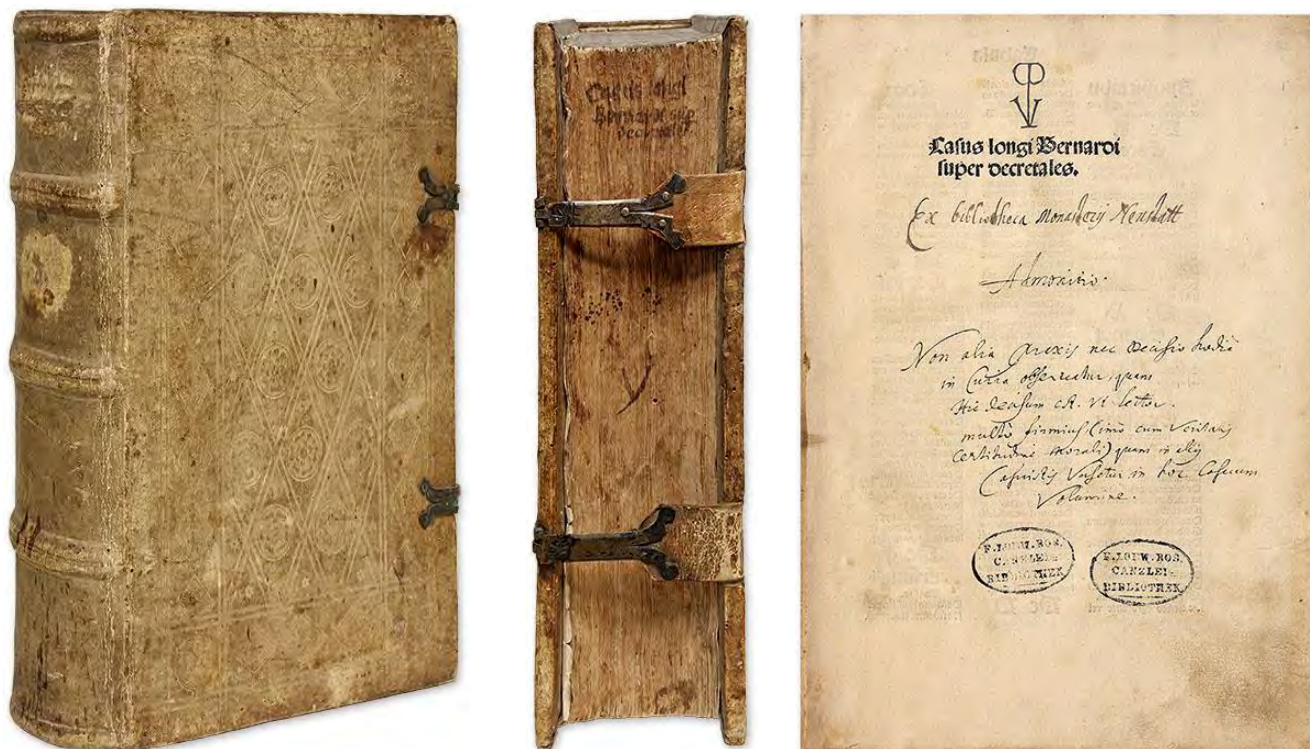 Casus longi
Bernardi sup
decretales
Casus longi Bernardi
super decretales.
Ex bibliotheca Monasterij Neustatt
Admonitio.
Non alia praxis nec decisio hodie
in Curia observatur, quam
hic decisum
multo firmius (imo cum veritatis
certitudine morali) quam in alijs
Casuistis in hoc Casuum
Volumine.
F. LÖEW. ROS.
CANZLEI-
BIBLIOTHEK
F. LÖEW. ROS.
CANZLEI-
BIBLIOTHEK